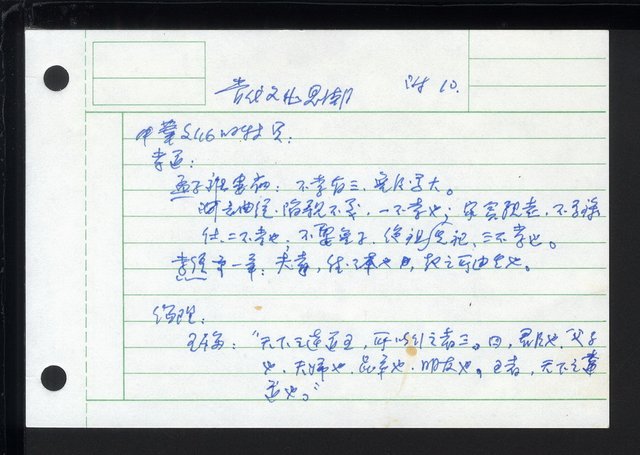 古代文化思潮 附 10.
中華文化的特質：
孝道：
孟子離婁篇：不孝有三，無後為大。
阿意曲從，陷親不義，一不孝也；家貧親老，不為祿
仕，二不孝也；不娶無子，絕祖先祀，三不孝也。
孝經第一章：夫孝，德之本也，教之所由生也。
倫理：
五倫："天下之達道五，所以行之者三。曰，君臣也，父子
也，夫婦也，昆弟也，朋友也。五者，天下之達
道也。"